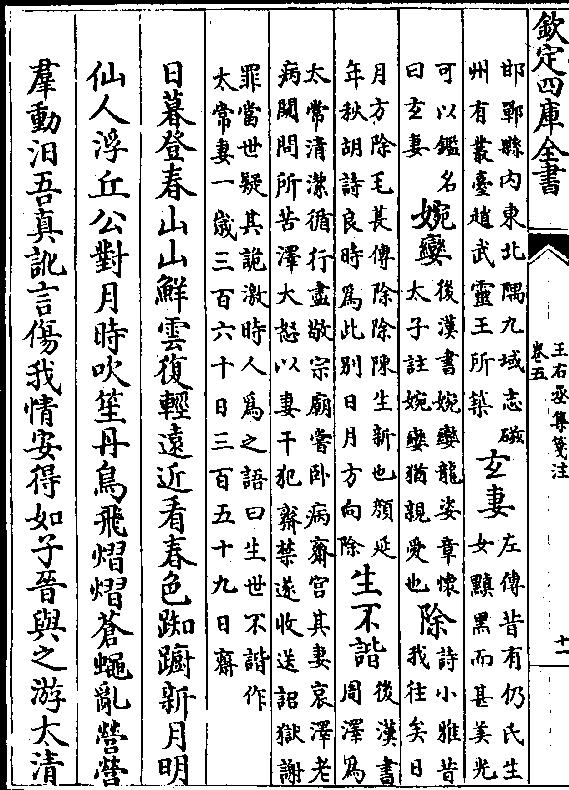 欽定四庫全書
王右丞集箋注
卷五
十一
邯鄲縣内東北隅九域志磁
州有叢臺趙武靈王所築
玄妻
左傳昔有仍氏生
女黰黑而甚美光
可以鑑名
曰玄妻
婉孌
後漢書婉孌龍姿章懷
太子註婉孌猶親愛也
除
詩小雅昔
我往矣日
月方除毛萇傳除除陳生新也顔延
年秋胡詩良時為此别日月方向除
生不諧
後漢書
周澤為
太常清潔循行盡敬宗廟嘗卧病齋宫其妻哀澤老
病闚問所苦澤大怒以妻干犯齋禁遂收送詔獄謝
罪當世疑其詭激時人為之語曰生世不諧作
太常妻一歲三百六十日三百五十九日齋
日暮登春山山鮮雲復輕遠近看春色踟蹰新月明
仙人浮丘公對月時吹笙丹鳥飛熠熠蒼蠅亂營營
羣動汨吾真訛言傷我情安得如子晉與之游太清